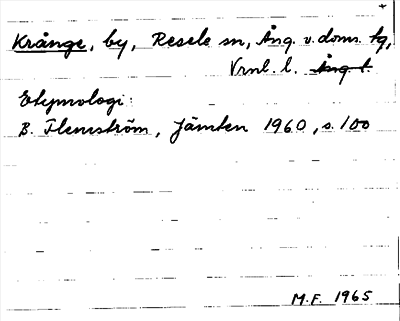 Krånge, by, Resele sn, Ång. v. doms. hg,
Vrnl. l. Ång l.
Etymologi:
B. Flemström, Jämten 1960, s. 100
M.F. 1965